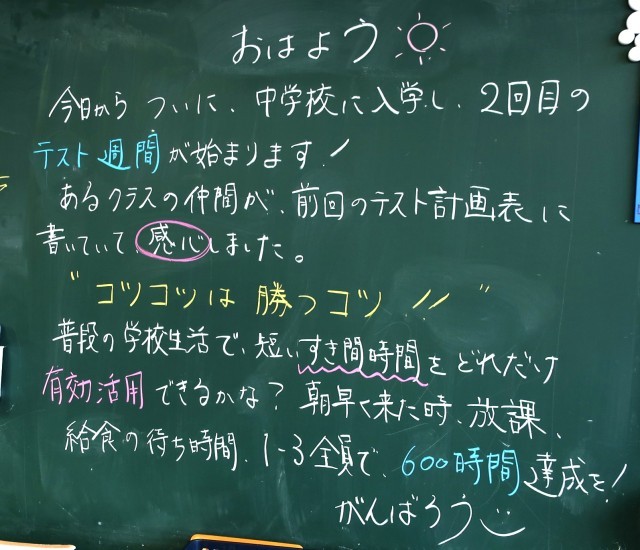 おはよう
今日から ついに、中学校に入学し、2回目の
テスト週間が始まります!
あるクラスの仲間が、前回のテスト計画表に
書いていて、感心しました。
"コツコツは 勝つコツ!!"
普段の学校生活で、短いすき間時間をどれだけ
有効活用できるかな?朝早く来た時、放課、
給食の待ち時間、1-3全員で、600時間達成を!
がんばろう